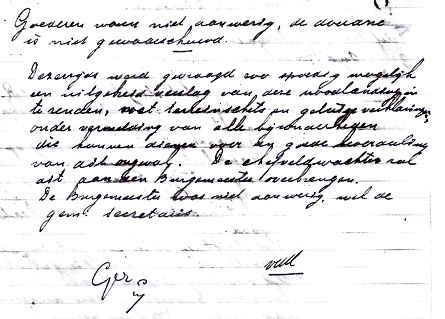 Goederen waren niet aanwezig, de douane
is niet gewaarschuwd.
Derzijds werd gevraagd zoo spoedig mogelijk
een uitgebreid verslag van deze noodlanding in
te zenden, met terreinschets en getuige verklaringen
onder vermelding van alle bijzonderheden
die kunnen dienen voor een goede beoordeling
van dit ongeval. De chefveldwachter zal
dit aan den Burgemeester overbrengen.
De Burgemeester was niet aanwezig, wel de
gem. secretaris.